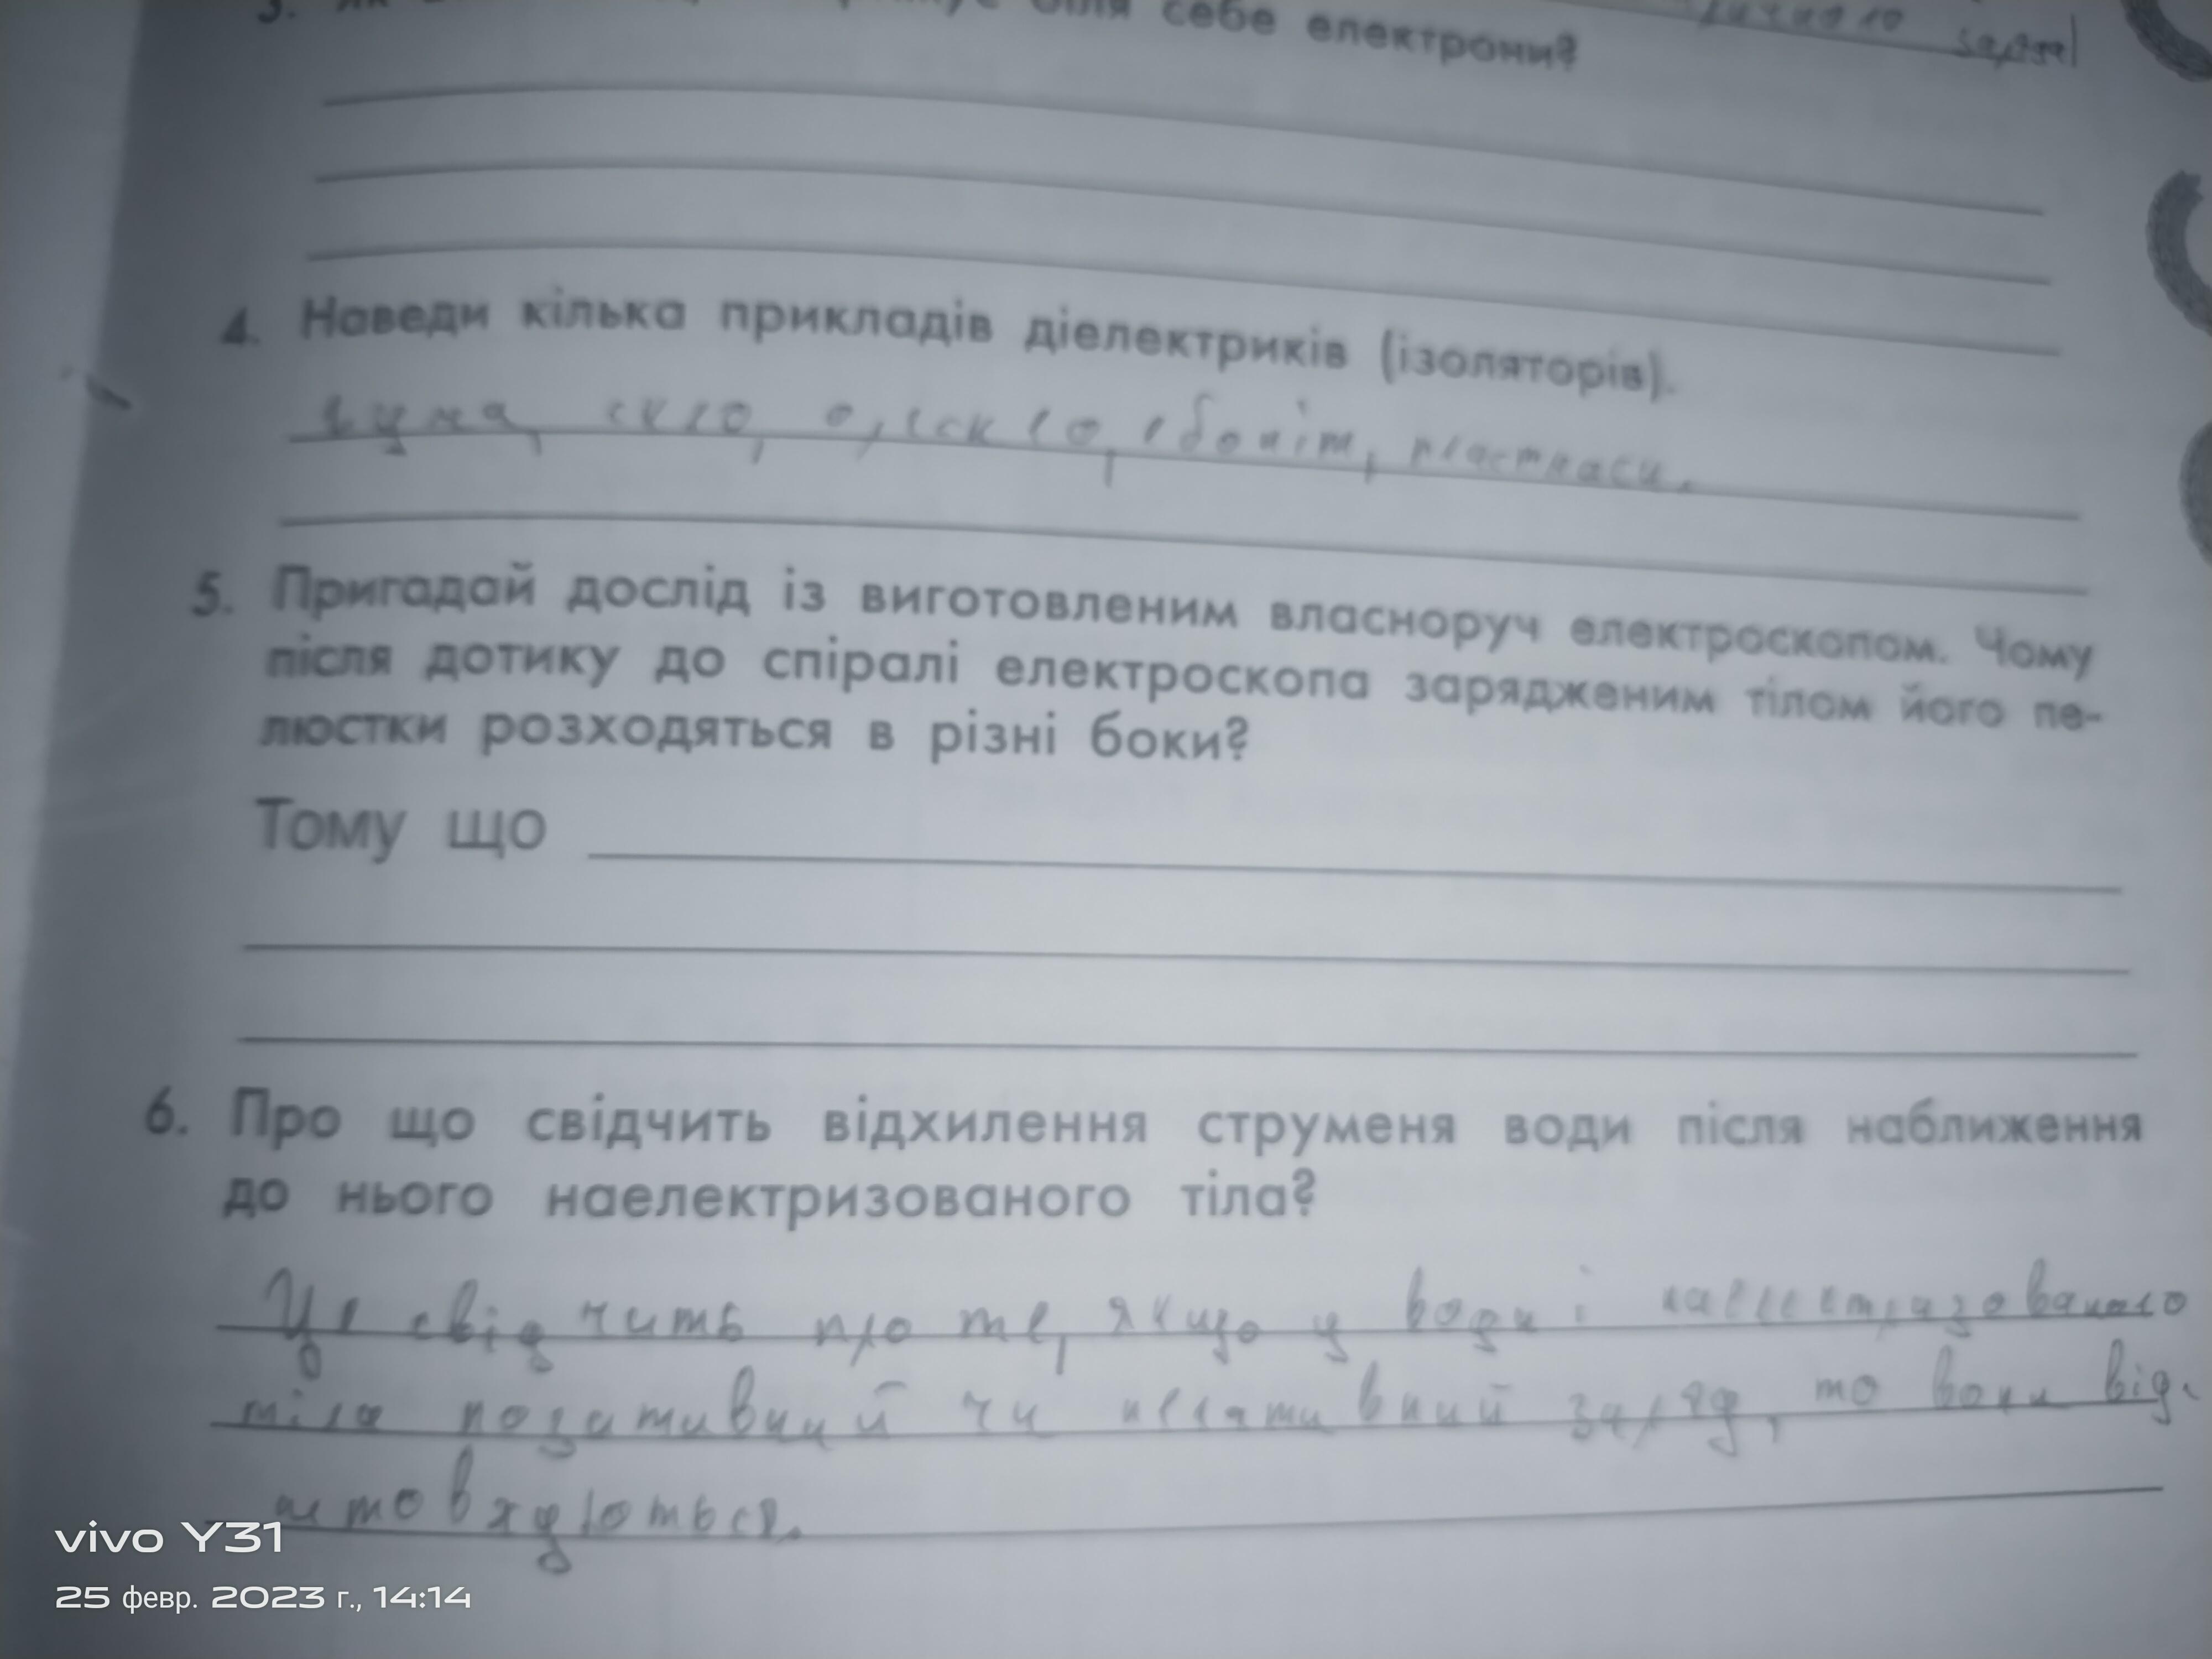 біля себе електрони?
заряд
4. Наведи кілька прикладів діелектриків (ізоляторів).
гума, скло, оргскло, ебоніт, пластмаси.
5. Пригадай дослід із виготовленим власноруч електроскопом. Чому
після дотику до спіралі електроскопа зарядженим тілом його пе-
люстки розходяться в різні боки?
Тому що
6. Про що свідчить відхилення струменя води після наближення
до нього наелектризованого тіла?
Це свідчить про те, якщо у води і наелектризованого
тіла позитивний чи негативний заряд, то вони від-
штовхуються.
vivo Y31
25 февр. 2023 г., 14:14